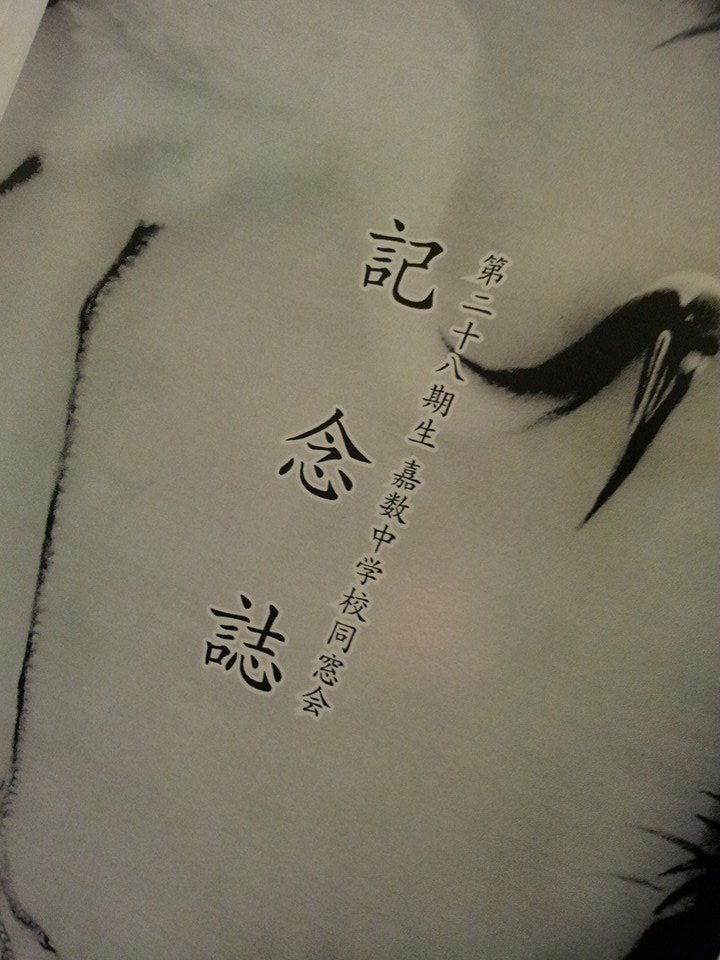 第二十八期生 嘉数中学校同窓会
記念誌